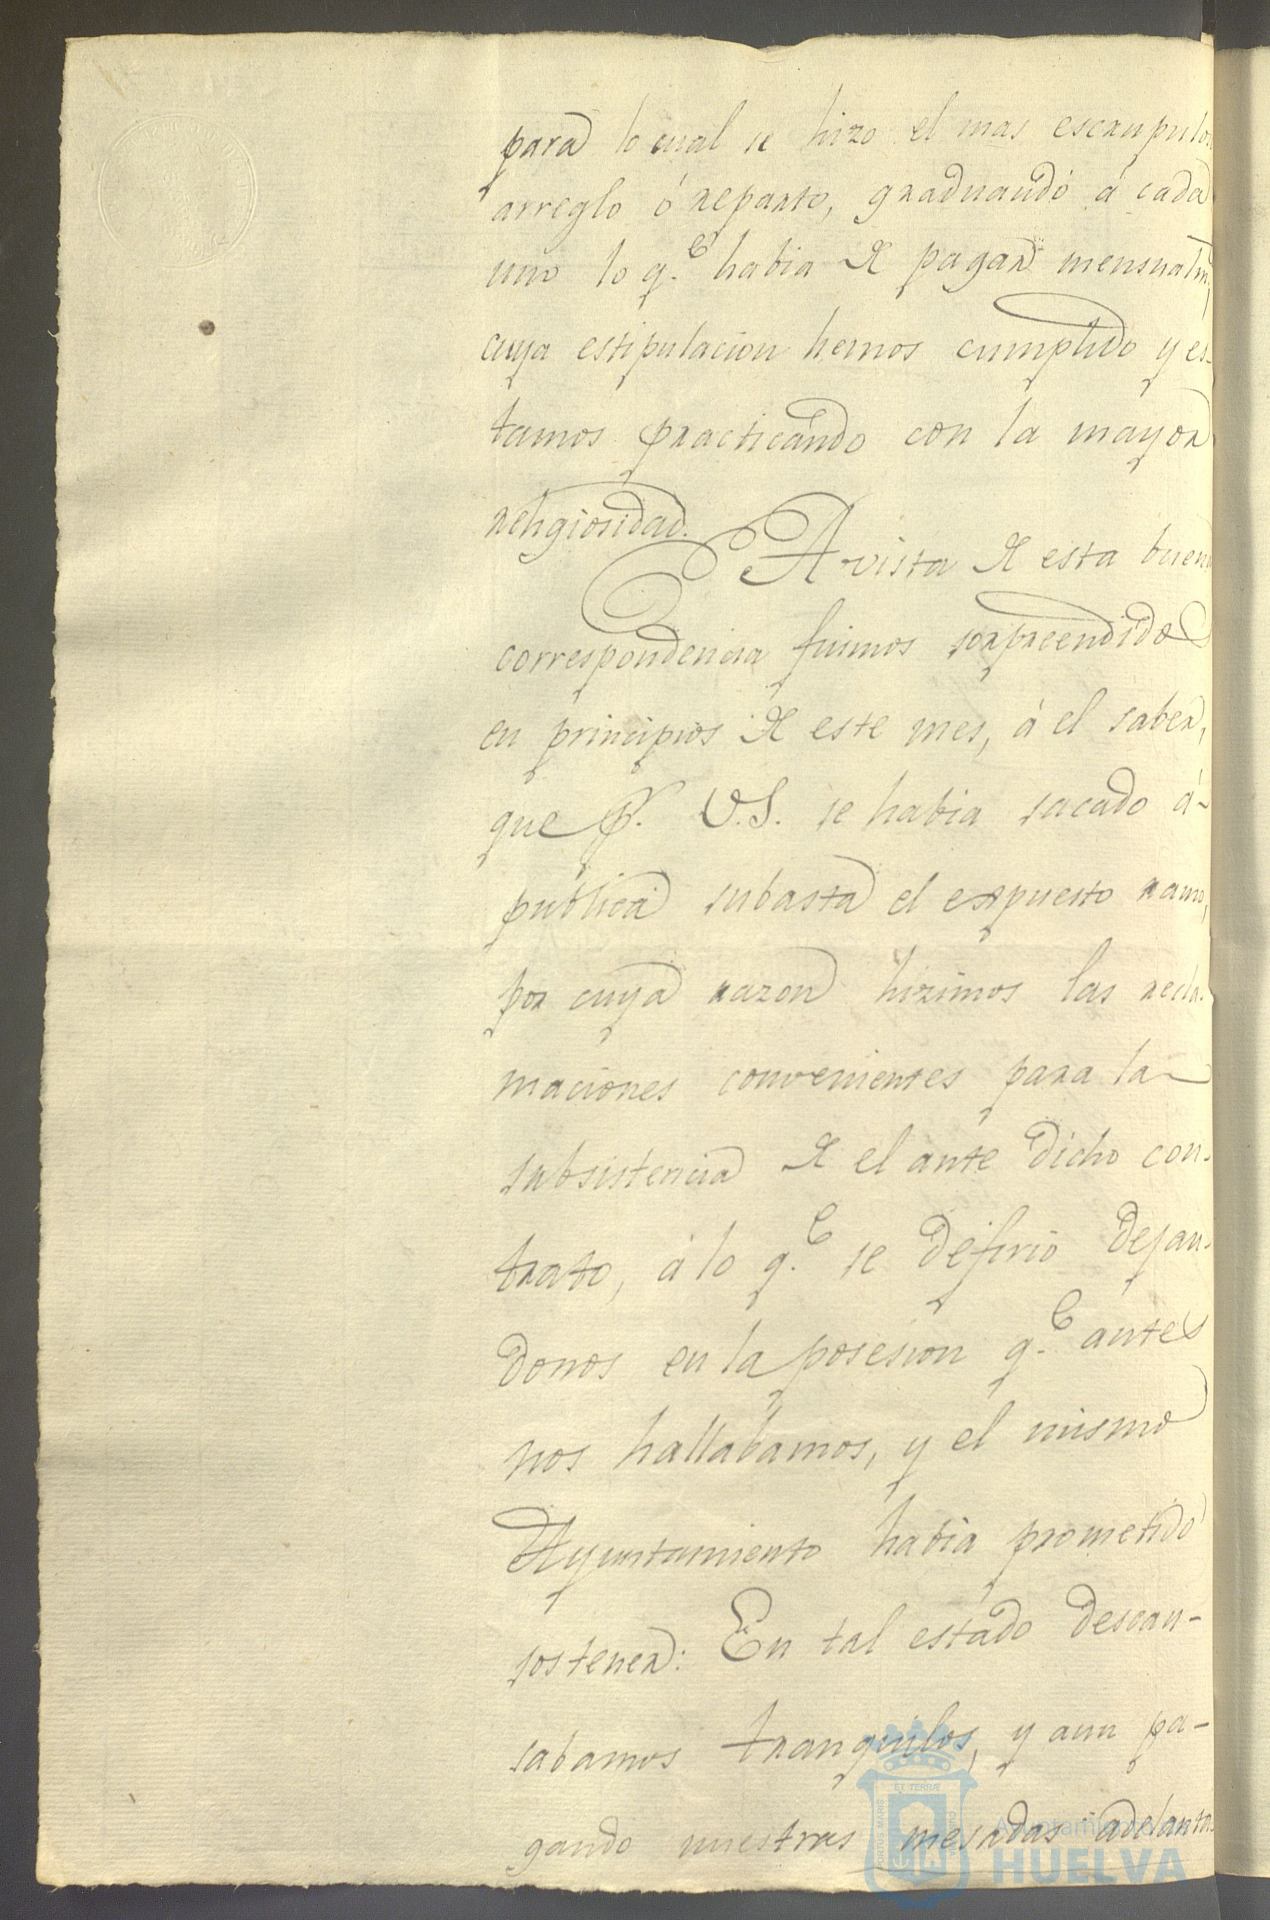 para lo cual se hizo el mas escrupulo
arreglo ó reparto, graduando á cada
uno lo q.e habia de pagar mensualm
cuya estipulacion hemos cumplido y es-
tamos practicando con la mayor
religiosidad.
A vista de esta buena
correspondencia fuimos sorpreendidos
en principios de este mes, á el saber,
que p.r V.S. se habia sacado á
publica subasta el expuesto ramo,
por cuya razon hizimos las recla-
maciones convenientes para la
subsistencia de el ante dicho con-
trato, á lo q.e se defirió dejan-
donos en la posesion q.e antes
nos hallabamos, y el mismo
Ayuntamiento habia prometido
sostener: En tal estado descan-
sabamos tranquilos, y aun pa-
gando nuestras mesadas adelanta
Ayuntamiento
HUELVA